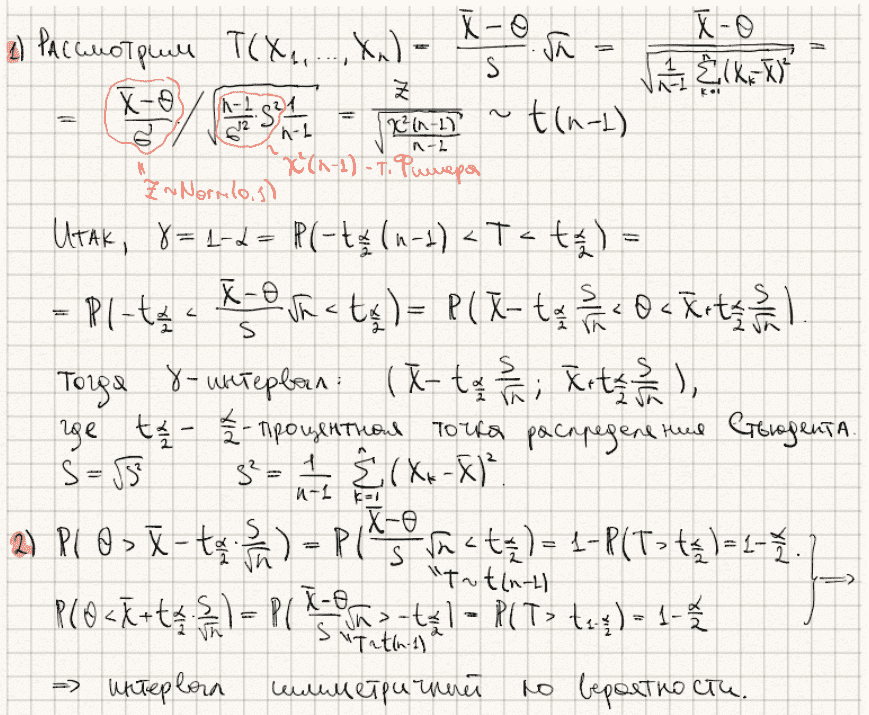 1) Рассмотрим T(X₁,...,Xₙ) = (X̄-θ)/S · √n = (X̄-θ)/√(1/(n-1) ∑ₖ₌₁ⁿ(Xₖ-X̄)²) =
= (X̄-θ)/σ / √((n-1)/σ² · S² 1/(n-1)) = Z/√(χ²(n-1)/(n-1)) ~ t(n-1)
" Z~Norm(0,1) ~ χ²(n-1) - т. Фишера
Итак, γ = 1-α = P(-t_{α/2}(n-1) < T < t_{α/2}) =
= P(-t_{α/2} < (X̄-θ)/S √n < t_{α/2}) = P(X̄ - t_{α/2} S/√n < θ < X̄ + t_{α/2} S/√n).
Тогда γ-интервал: (X̄ - t_{α/2} S/√n ; X̄ + t_{α/2} S/√n),
где t_{α/2} - α/2-процентная точка распределения Стьюдента.
S = √S² S² = 1/(n-1) ∑ₖ₌₁ⁿ (Xₖ-X̄)².
2) P(θ > X̄ - t_{α/2} · S/√n) = P((X̄-θ)/S √n < t_{α/2}) = 1-P(T > t_{α/2}) = 1-α/2. } ⟹
"T~t(n-1)
P(θ < X̄ + t_{α/2} · S/√n) = P((X̄-θ)/S √n > -t_{α/2}) = P(T > t_{1-α/2}) = 1-α/2
"T~t(n-1)
⟹ интервал симметричный по вероятности.